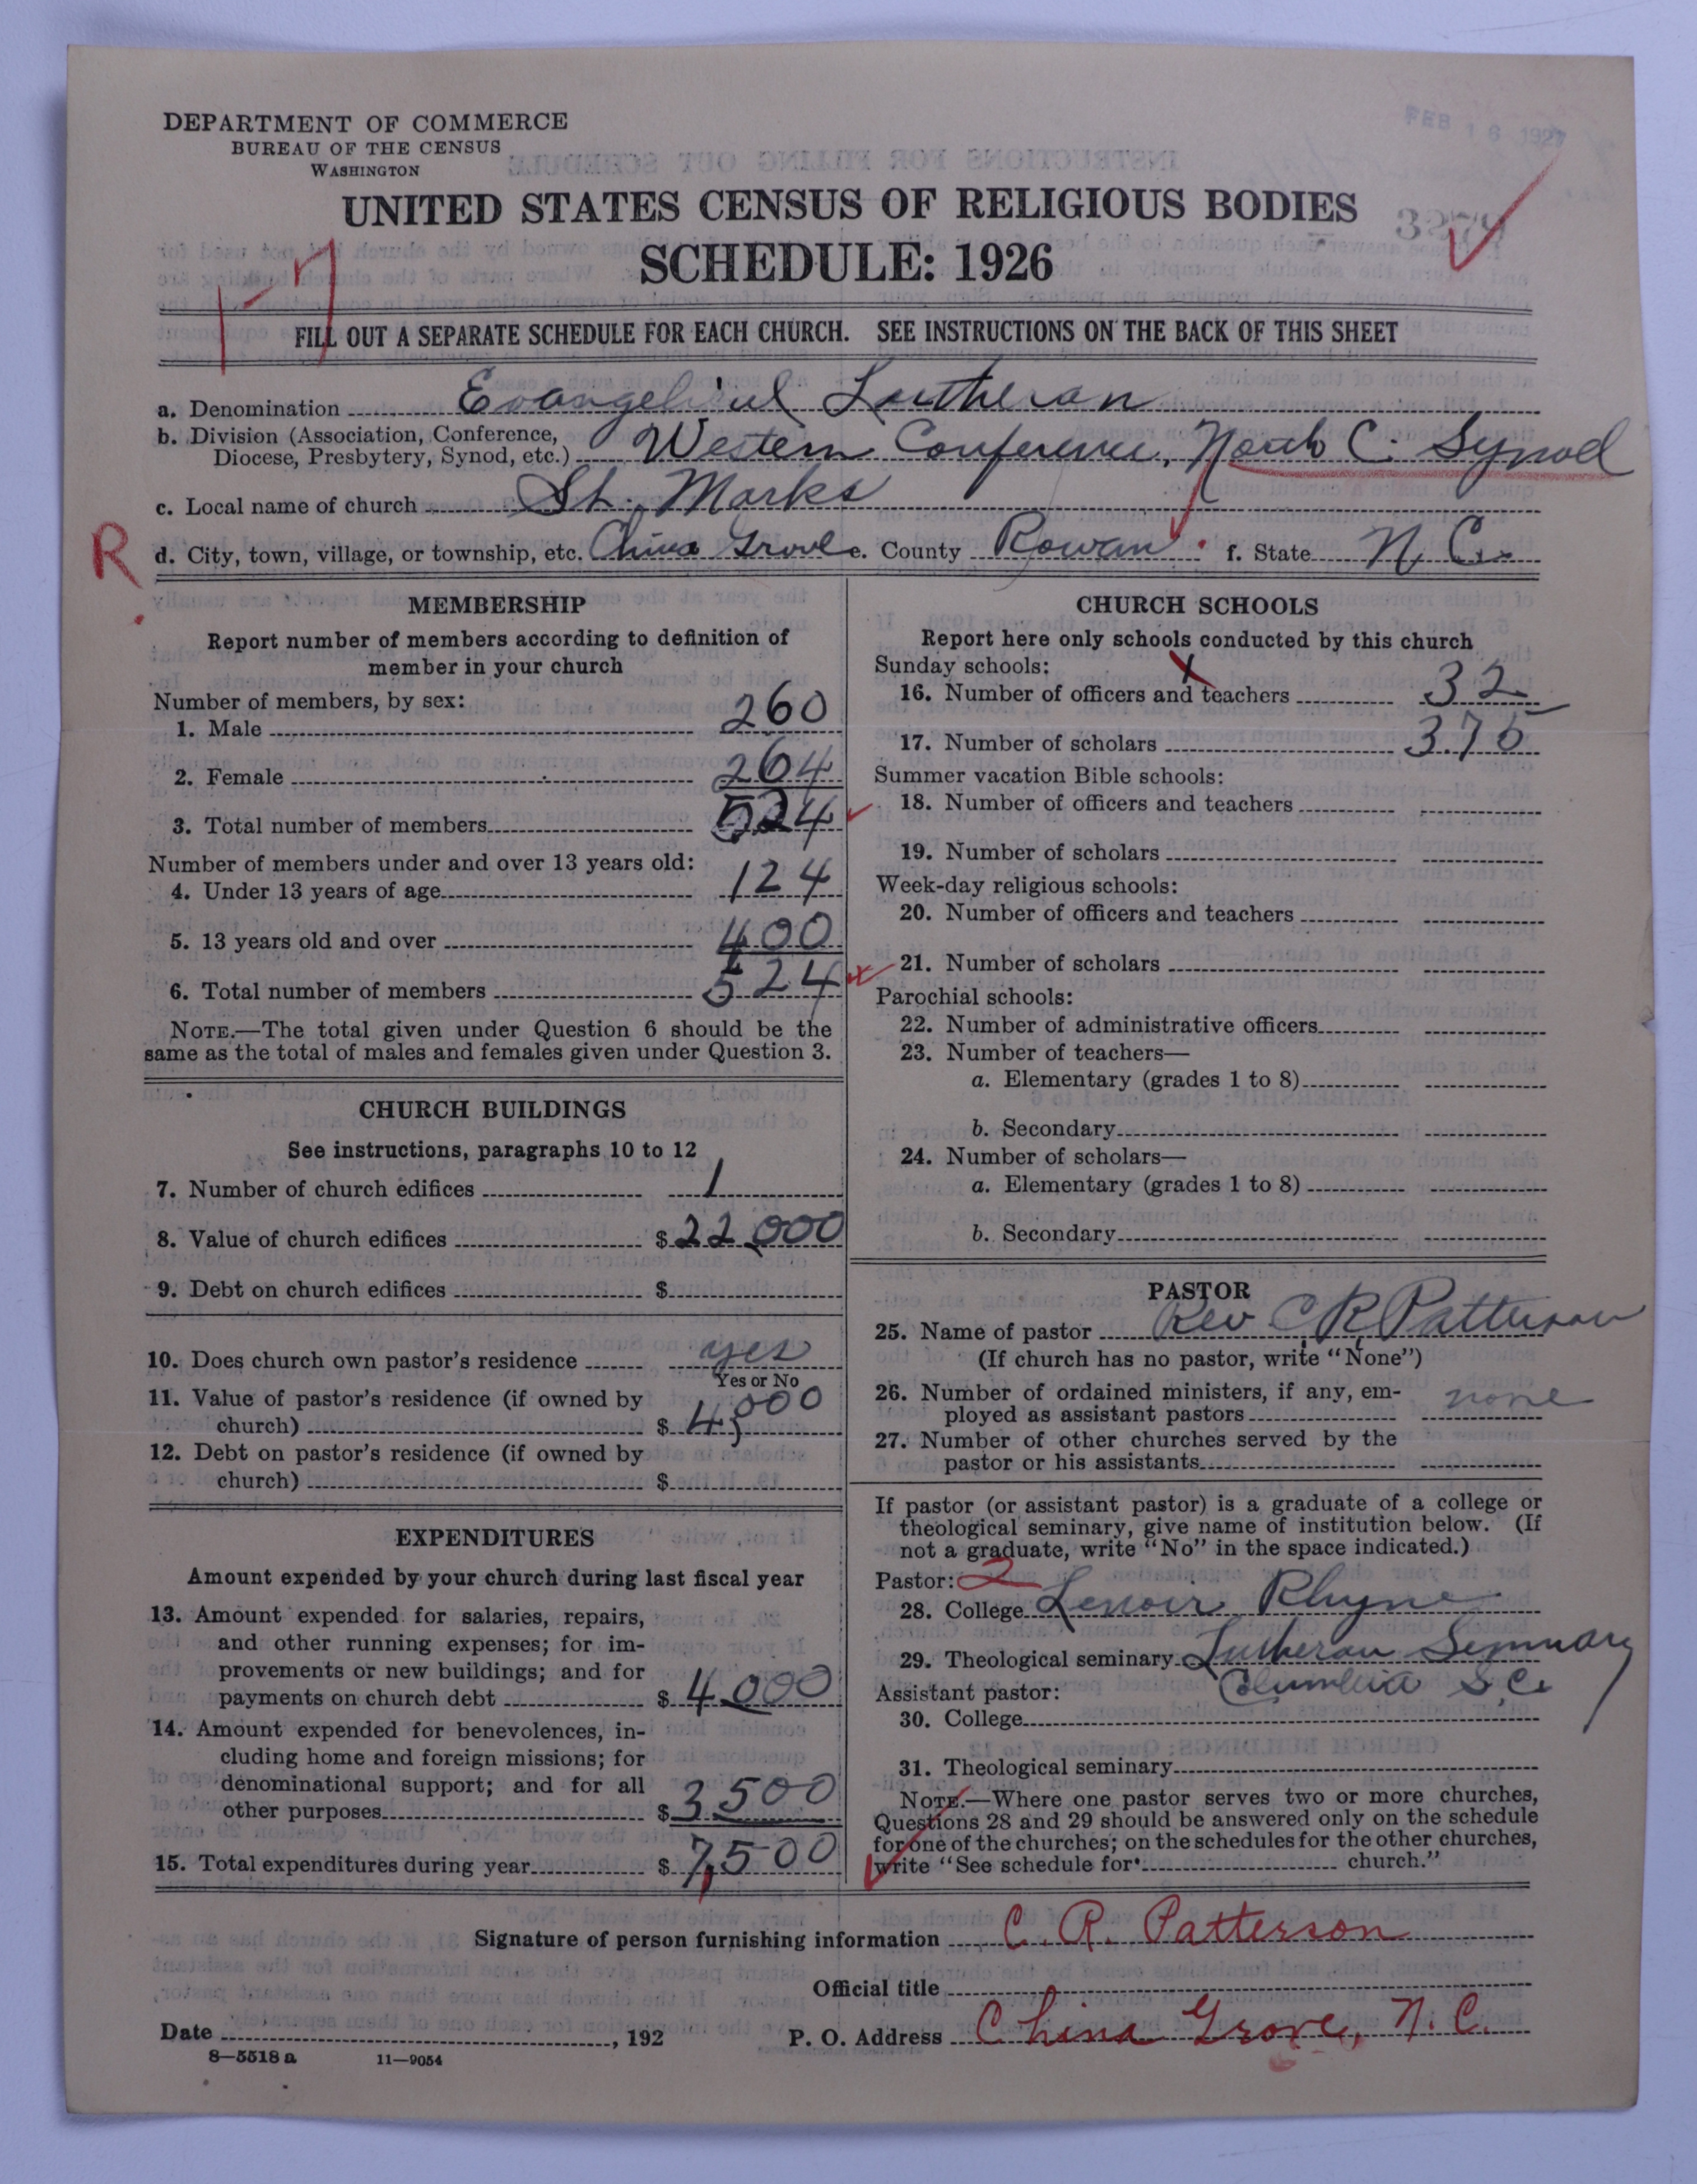 DEPARTMENT OF COMMERCE
BUREAU OF THE CENSUS
WASHINGTON
FEB 16 1927
UNITED STATES CENSUS OF RELIGIOUS BODIES
SCHEDULE: 1926
FILL OUT A SEPARATE SCHEDULE FOR EACH CHURCH. SEE INSTRUCTIONS ON THE BACK OF THIS SHEET
a. Denomination Evangelical Lutheran
b. Division (Association, Conference, Diocese, Presbytery, Synod, etc.) Western Conference, North C. Synod
c. Local name of church St. Marks
R
d. City, town, village, or township, etc. China Grove e. County Rowan f. State N. C.
MEMBERSHIP
Report number of members according to definition of
member in your church
Number of members, by sex:
1. Male 260
2. Female 264
3. Total number of members 524
Number of members under and over 13 years old:
4. Under 13 years of age 124
5. 13 years old and over 400
6. Total number of members 524
NOTE.—The total given under Question 6 should be the
same as the total of males and females given under Question 3.
CHURCH BUILDINGS
See instructions, paragraphs 10 to 12
7. Number of church edifices 1
8. Value of church edifices $22,000
9. Debt on church edifices $
10. Does church own pastor's residence yes
Yes or No
11. Value of pastor's residence (if owned by
church) $4,000
12. Debt on pastor's residence (if owned by
church) $
EXPENDITURES
Amount expended by your church during last fiscal year
13. Amount expended for salaries, repairs,
and other running expenses; for im-
provements or new buildings; and for
payments on church debt $4,000
14. Amount expended for benevolences, in-
cluding home and foreign missions; for
denominational support; and for all
other purposes $3500
15. Total expenditures during year $7,500
CHURCH SCHOOLS
Report here only schools conducted by this church
Sunday schools:
16. Number of officers and teachers 32
17. Number of scholars 375
Summer vacation Bible schools:
18. Number of officers and teachers
19. Number of scholars
Week-day religious schools:
20. Number of officers and teachers
21. Number of scholars
Parochial schools:
22. Number of administrative officers
23. Number of teachers—
a. Elementary (grades 1 to 8)
b. Secondary
24. Number of scholars—
a. Elementary (grades 1 to 8)
b. Secondary
PASTOR
25. Name of pastor Rev C R Patterson
(If church has no pastor, write "None")
26. Number of ordained ministers, if any, em-
ployed as assistant pastors none
27. Number of other churches served by the
pastor or his assistants
If pastor (or assistant pastor) is a graduate of a college or
theological seminary, give name of institution below. (If
not a graduate, write "No" in the space indicated.)
Pastor: 2
28. College Lenoir Rhyne
29. Theological seminary Lutheran Seminary
Columbia S.C.
Assistant pastor:
30. College
31. Theological seminary
NOTE.—Where one pastor serves two or more churches,
Questions 28 and 29 should be answered only on the schedule
for one of the churches; on the schedules for the other churches,
write "See schedule for church."
Signature of person furnishing information C. R. Patterson
Official title
Date , 192
P. O. Address China Grove, N. C.
8—5518 a 11—9054